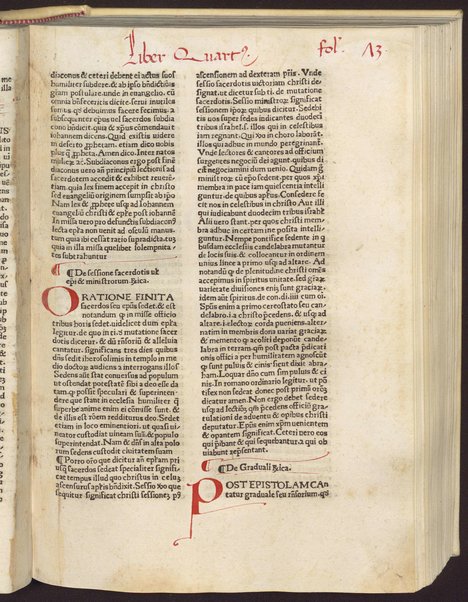 Liber Quart⁹.
fol. 13
diaconus & ceteri debent ei actus suos
humiliter subdere. & ab ipso bñdictiõis
giam postulare unde in euangelio. cũ
omnia bñfeceritis dicite. serui inutiles
sumus qđ debuimus facere fecimus. a
subsequenter epus uel sacerdos subdia
cono bñdicit. quia & xp̃us comendauit
iohannem dicens. Quid existis uidere
in deserto
Amen dico. Inter natos
mulierũ &c. Subdiaconus ergo post finẽ
diaconus uero añ principiũ lectionis ad
sacerdotem accedit & exhibet reueren
tiam. quia lex finem accepit in christo
sed euangelii originem sumpsit ab ipso
Nam lex & prophete usq ad Iohannem
euangeliũ christi & cepte post iohannẽ
In missa uero pro defunctis subdiacon⁹
lecta epła non uenit ad osculũ manus.
tum quia ibi cessat ratio supradicta. tuʒ
quia in illa missa quelibet solempnita
tes subtrahuntur
¶De sessione sacerdotis uł
epi & ministrorum
ORATIONE FINITA
sacerdos seu epũs sedet. & est
notandum q̃ in misse officio
tribus horis sedet. uidelicet dum epła
legitur. de quo in ti. de mutatione sacer
dotis dicetur. & dũ rñsoriũ & alleluia
cantatur. significans tres dies quibus
dñs sedit ierosolimis in templo in me
dio doctorũ audiens & interrogans illos
Sedens autẽ stat conuersus ad populum
ut ostendat potestatẽ sibi a deo esse da
tam. q̃ possit speculari & superinten
dere quo stant in ecclesia humiliter q̃
superbe anime enim ei cõmisse sunt. &
de illis est rõem redditurus deo. Sedet
etiam in loco eminentiori. ut quasi ui
neator custodiat uineam suã. & populo
superintendat. Nam & dñs in alta polo
rum sedens custodit ciuitatem suam
¶Porro oĩo que dicitur añ eplam pri
usq̃ sacerdos sedeat specialiter signifi
cat tempus illud quo christus in celuʒ
ascensurus aplis bñdixit. Sessio uo que
sequitur significat christi sessionẽ p9
ascensionem ad dexteram pr̃is. Vnde
sessio sacerdotis uictoriam christi de
signat. ut dicetur sub ti. de mutatione
sacerdotis. Sessio ministrorũ significat
sessionem ipsorũ quibus dicitur. Sedebi
tis uos super sedes iudicantes duodeci
tribus israhel. s. illos qui in celestibus
iam regnant. Qui uo in choro laborãt.
illos qui adhuc in mundo peregrinant.
Vnde lectores & cantores ad officium
surgentes negocii dei agunt. quibus di
cit est negociamini dum uenio. Quidam
nistrorũ cũ epõ sedent. per quos xp̃i
membra in pace iam quiescentia intelli
guntur. de quibus aplus. Consedere fe
cit nos in celestibus in christo. Aut illi
qui iudicabunt duodecim tribus israhel
Alii uero stant. per quos christi mem
bra adhuc in certamine posita intelli
guntur. Nempe pontifice sedente in q̃
busdam ecclesiis candelabra mutantur
de locis suis. & collocantur in ordinem
unius linee a primo usq ad altare. Ad
notandũ q̃ de plenitudine christi omẽs
accepimus in spiritus unitate. sed graʒ
uarietate diuisiones enim sunt graciaʒ
idem aũt spiritus. de con. di. iiii. cum oĩs.
Spiritus enim a primo cereostato seu can
delabro. i. a christo ꝓcedens. & usq ad
altare. i. electorʒ corda perueniens. alter
natim in membris dona uariat graciaʒ.
& memento q̃ acoliti deponũt cande
labra in terram. quia post pactã pdicati
onis offici a per humiliatem agnoscũt
q̃ sunt puluis & cinis. sicut dixit abra
ham. Loquar dño cum sim puluis & ci
nis. In romano ordinario legitur. ut põ
tifex non sedeat donec post primã orõʒ
dicatur amen. Non ergo debet sedere
usq ad lectionẽ. quia pcedens officiũ gra
tulationi de aduentu & obitus eptionis
deputatur. Epus enim xp̃um uenientem
& optantem significat. Ceteri uero eos
qui pibant & qui sequebantur. a qui ob
uiabant repsentant.
¶De Graduali
POST EPISTOLAM CAN
tatur graduale seu rñsorium. qđ